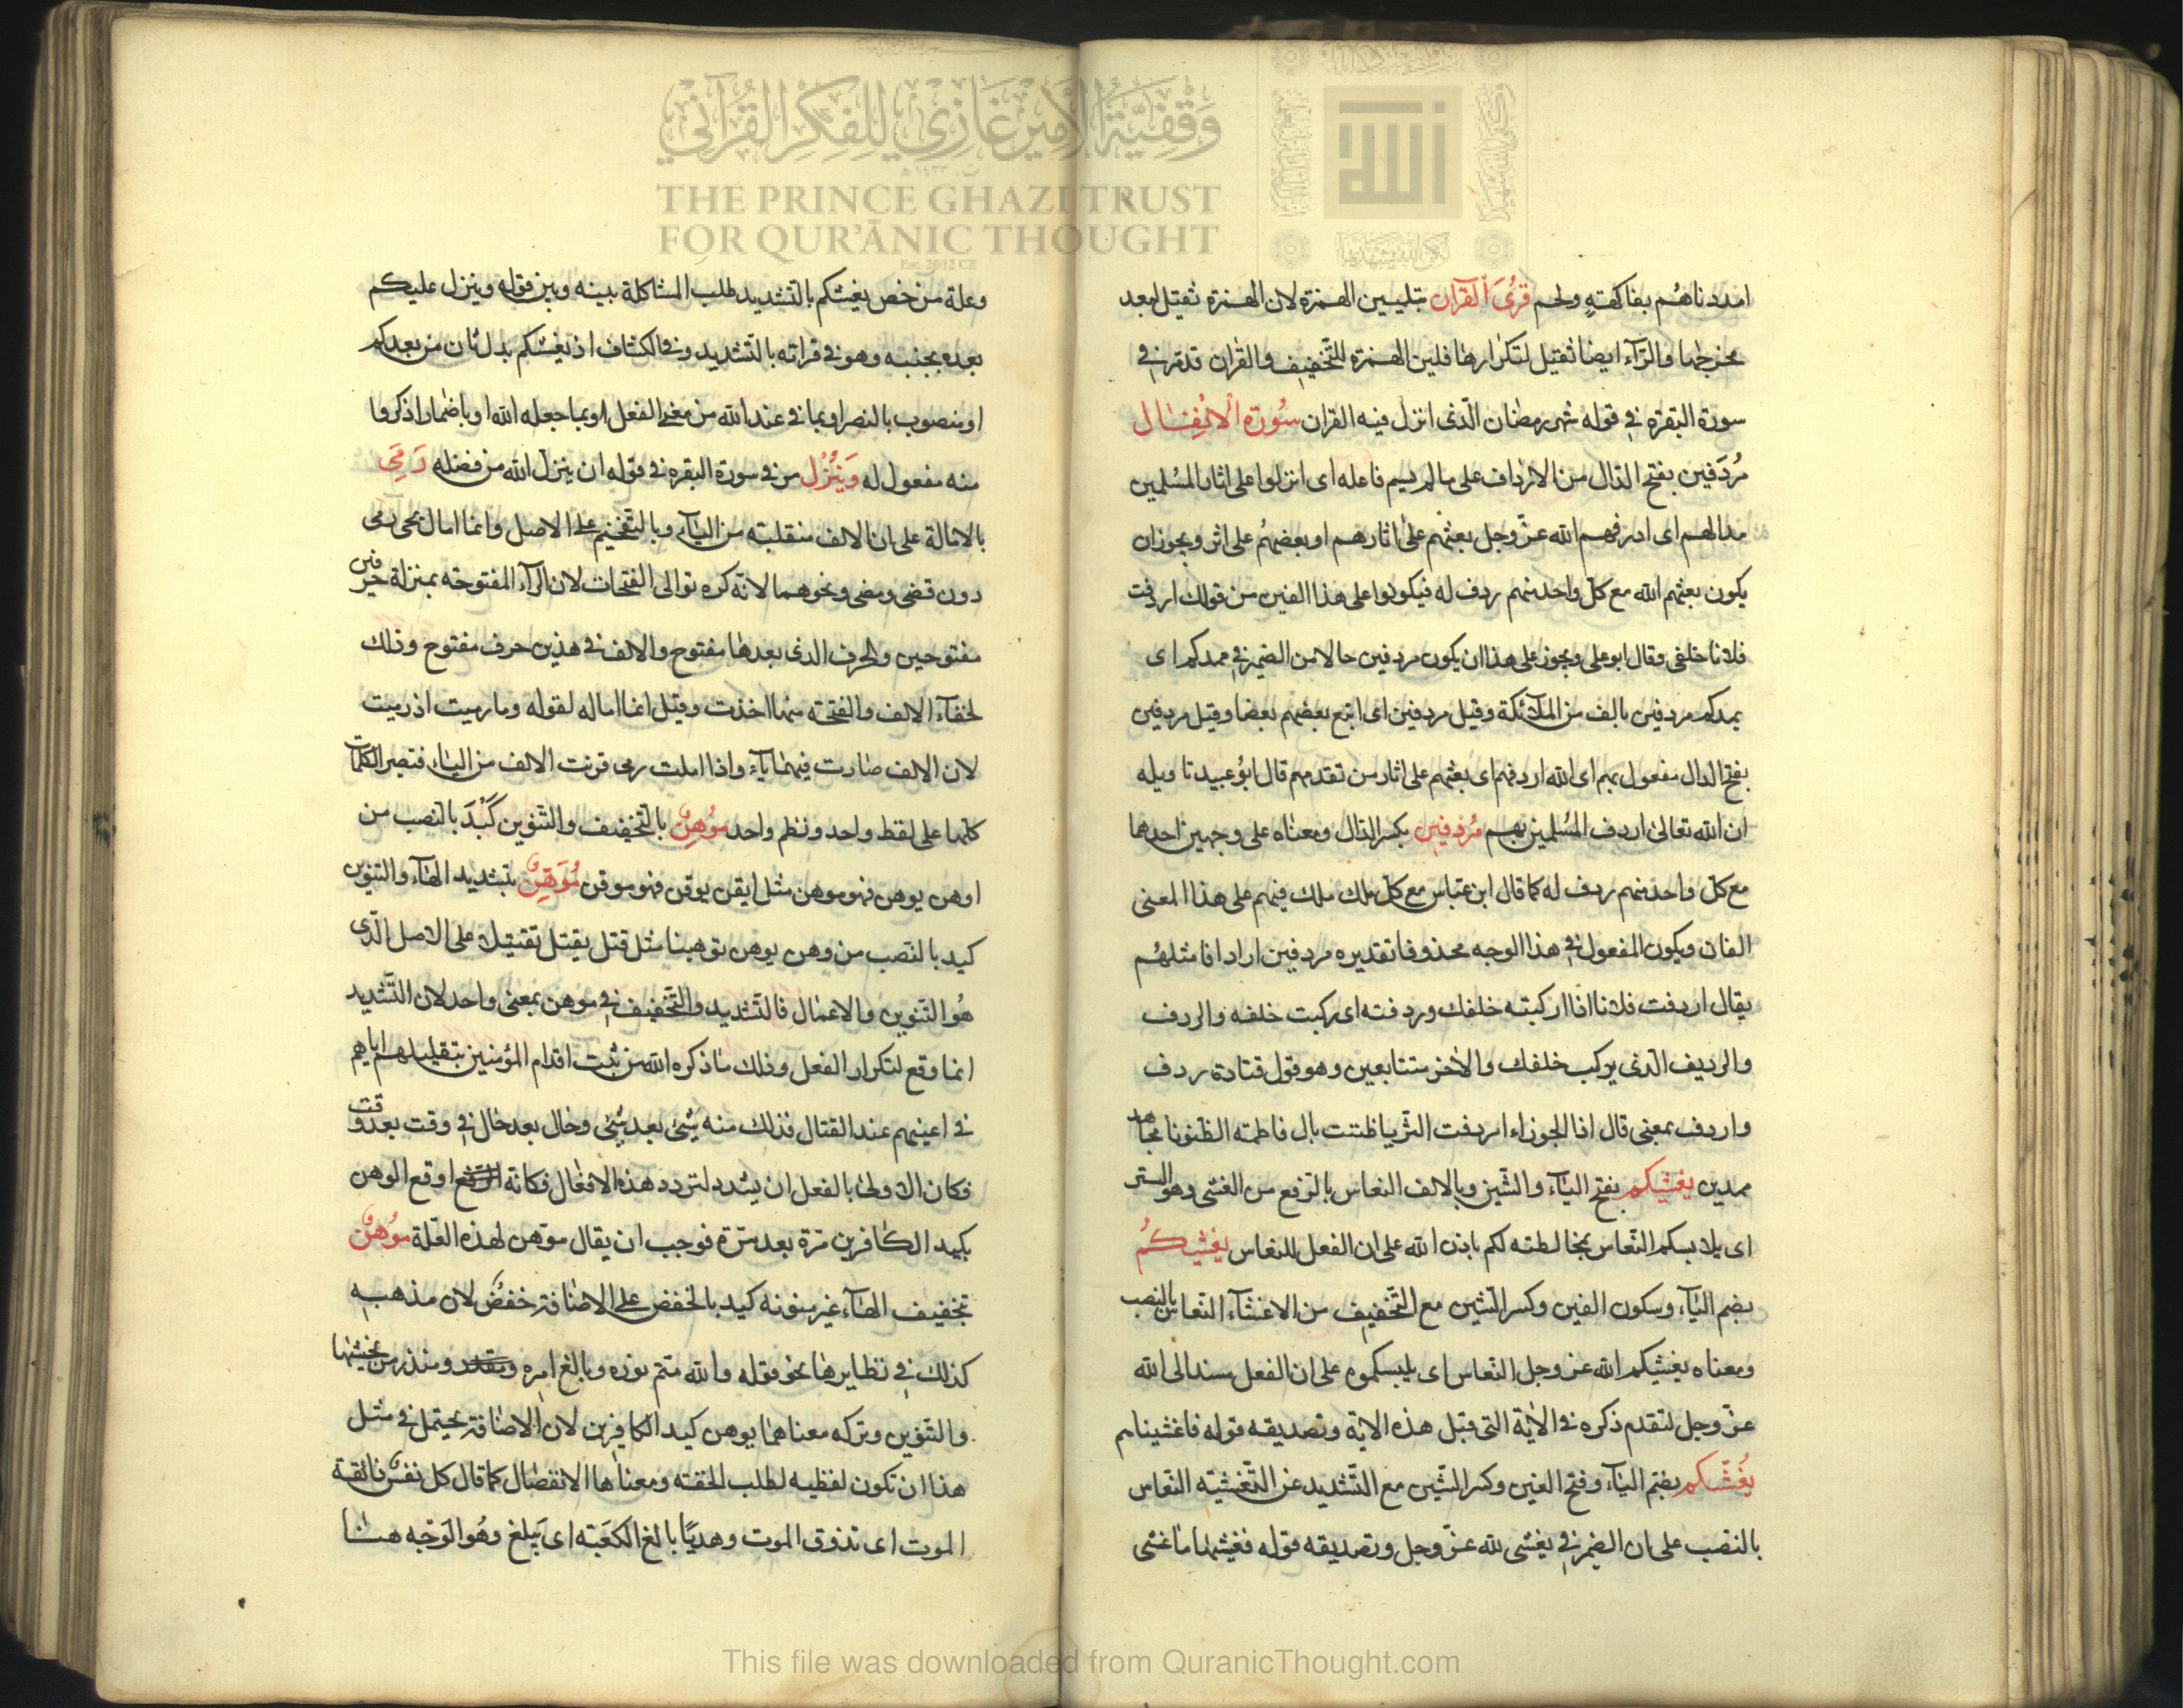 وقفية الأمير غازي للفكر القرآني
THE PRINCE GHAZI TRUST
FOR QUR'ĀNIC THOUGHT
امددناهم بفاكهة ولحم قرئ القرآن بتليين الهمزة لان الهمزة ثقيل لبعد
مخرجها والرّآء ايضا ثقيل لتكرارها فلين الهمزة للتّخفيف والقران قد قرئ في
سورة البقرة في قوله شهر رمضان الّذى انزل فيه القران سُورة الانفال
مُردَفين بفتح الدّال من الارداف على ما لم يسم فاعله اى انزلوا على اثار المسُلمين
مدا لهم اى اردفهم الله عزّ وجل بعثهم على اثارهم او بعضهُم على اثر ويجوز ان
يكون بعثهم الله مع كلّ واحد منهم ردف له فيكونوا على هذا الفين من قولك اردفت
فلانا خلفى وقال ابو على ويجوز على هذا ان يكون مردفين حالا من الضمير في ممدكم اى
يمدكم مردفين بالف من الملآئكة وقيل مردفين اى اتبع بعضهم بعضا وقيل مردفين
بفتح الدال مفعول بهم اى الله اردفهم اى بعثهم على اثار من تقدمهم قال ابوُ عبيد تاويله
ان الله تعالى اردف المسُلمين بهم مُردفين بكسر الدّال ومعناه على وجهين احدها
مع كلّ واحد منهم ردف له كما قال ابن عبّاس مع كلّ ملك ملك فيهم على هذا المعنى
الفان ويكون المفعول في هذا الوجه محذوفا تقديره مردفين ارادافا مثلهُم
يقال اردفت فلانا اذا اركبته خلفك وردفته اى ركبت خلفه والردف
والرديف الّذى يركب خلفك والاخر متتابعين وهو قول قتادة ردف
واردف بمعنى قال اذا الجوزاء اردفت الثّريا ظننت بال فاطمة الظنونا مجاهد
ممدين يغشيكم بفتح اليآء والشّين وبالالف النعاس بالرّفع من الغشى وهو الستر
اى يلابسكم النّعاس بمخالطته لكم باذن الله على ان الفعل للنعاس يغشيكُم
بضم اليآء وسكون الغين وكسر الشّين مع التّخفيف من الاغشآء النّعاس بالنصب
ومعناه يغشيكم الله عزّ وجل النّعاس اى يلبسكموه على ان الفعل مسند الى الله
عزّ وجل لتقدم ذكره في الاية التى قبل هذه الاية وتصديقه قوله فاغشيناهم
يُغَشّيكم بضم اليآء وفتح الغين وكسر الشّين مع التّشديد عن التّغشيّه النّعاس
بالنصب على ان الضمير في يغشى لله عزّ وجل وتصديقه قوله فغشيها ما غشى
وعلة من خص يغشيكم بالتّشديد طلب المشاكلة بينه وبين قوله وينزل عليكم
بعده بجنبه وهو في قراته بالتّشديد وفي الكشاف اذ يغشيكم بدل ثان من بعدكم
او منصوب بالنصر او بما في عند الله من معنى الفعل او بما جعله الله او باضمار اذكروا
منه مفعول له وَيُنْزِل من في سورة البقره في قوله ان ينزل الله من فضله رَمَى
بالامالة على ان الالف منقلبته من اليآء وبالتّفخيم على الاصل وانما امال يحيى رمى
دون قضى ومضى ونحوهما لانّه كره توالى الفتحات لان الرّآء المفتوحة بمنزلة حرفين
مفتوحين والحرف الذى بعدها مفتوح والالف في هذين حرف مفتوح وذلك
لخفآء الالف والفتحة منها اخذت وقيل انما اماله لقوله وما رميت اذ رميت
لان الالف صارت فيهما يآء واذا املت رمى قربت الالف من اليآء فتصير الكلمات
كلها على لفظ واحد ونظم واحد مُوُهِنٌ بالتّخفيف والتّنوين كَيْدَ بالنّصب من
اوهن يوهن فهو موهن مثل ايقن يوقن فهو موقن مُوَهِّنٌ بتشديد الهآء والتنوين
كيد بالنّصب من وهن يوهن توهينا مثل قتل يقتل تقتيلا على الاصل الّذى
هُو التّنوين والاعمال فالتّشديد والتّخفيف في موهن بمعنى واحد لان التّشديد
انما وقع لتكرار الفعل وذلك ما ذكره الله من ثبت اقدام المؤمنين بتقليلهم اياهم
في اعينهم عند القتال فذلك منه شئ بعد شئ وحال بعد حال في وقت بعد وقت
فكان الاولى بالفعل ان يشدد لتردد هذه الافعال فكانّه اوقع الوهن
بكيد الكافرين مرّة بعد مرّة فوجب ان يقال موّهن لهذه العّلة مُوُهنُ
تخفيف الهآء غير منونه كيد بالخفض على الاضافة خفضٌ لان مذهبه
كذلك في نظايرها نحو قوله والله متم نوره وبالغ امره ومنذر من يخشيها
والتنّوين وتركه معناهما يوهن كيد الكافرين لان الاضافة يحتمل في مثل
هذا ان تكون لفظيه لطلب الخفّته ومعناها الانفصال كما قال كل نفس ذائقة
الموت اى تذوق الموت وهديًا بالغ الكعَبَة اى يَبلغ وهُو الوَجه هنا
This file was downloaded from QuranicThought.com